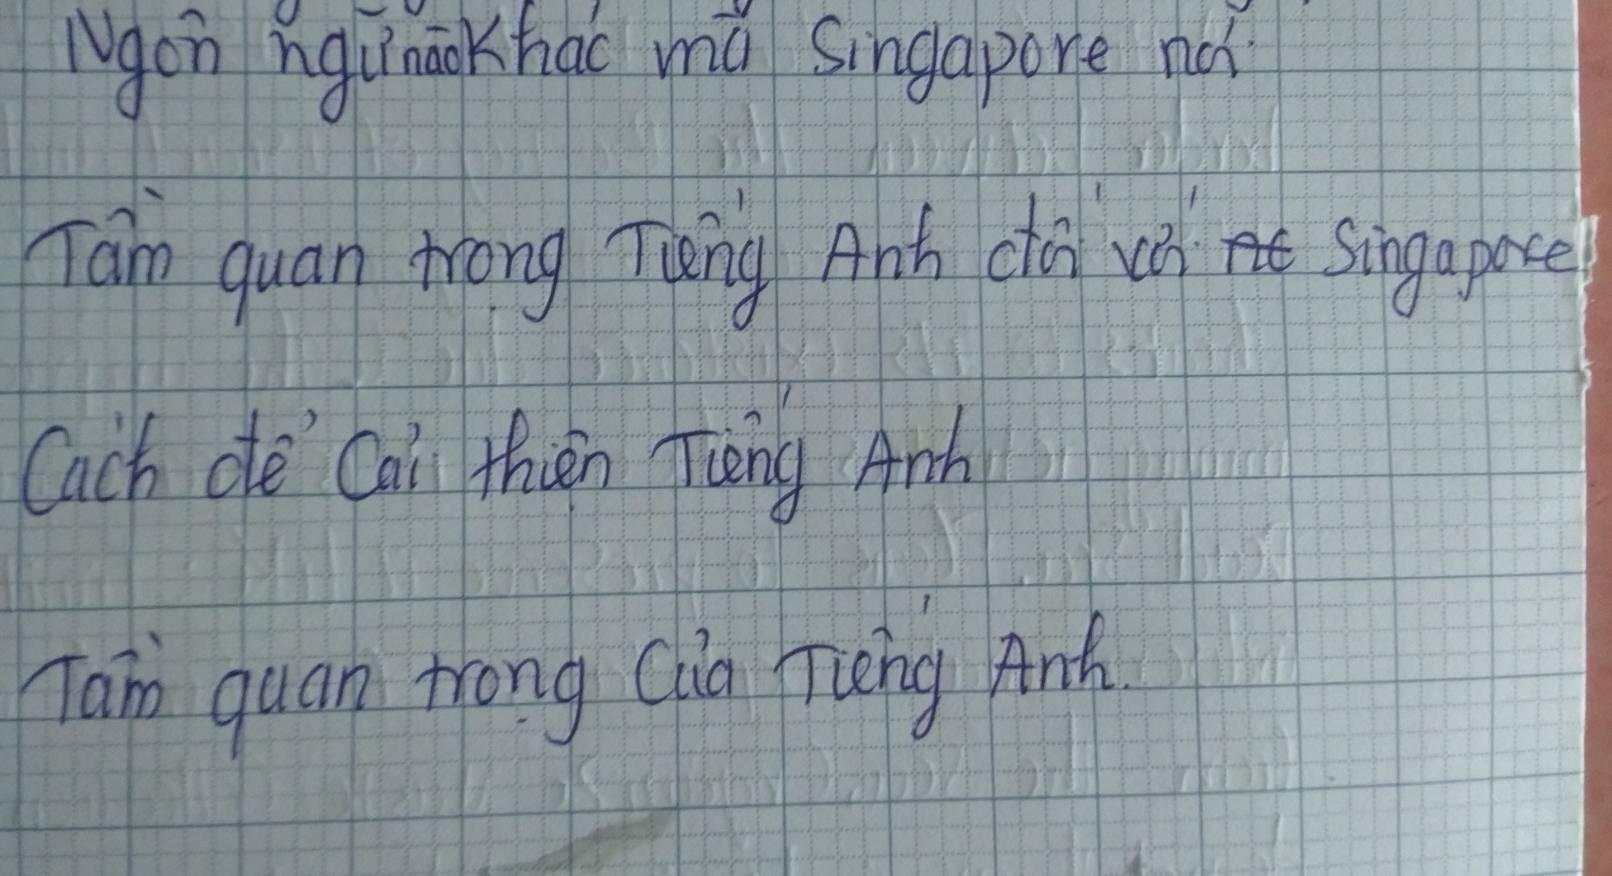 Ngôn ngữ nào khác mà Singapore nói
Tầm quan trọng Tiếng Anh đối với Singapore
Cách để Cải thiện Tiếng Anh
Tầm quan trọng Của Tiếng Anh.